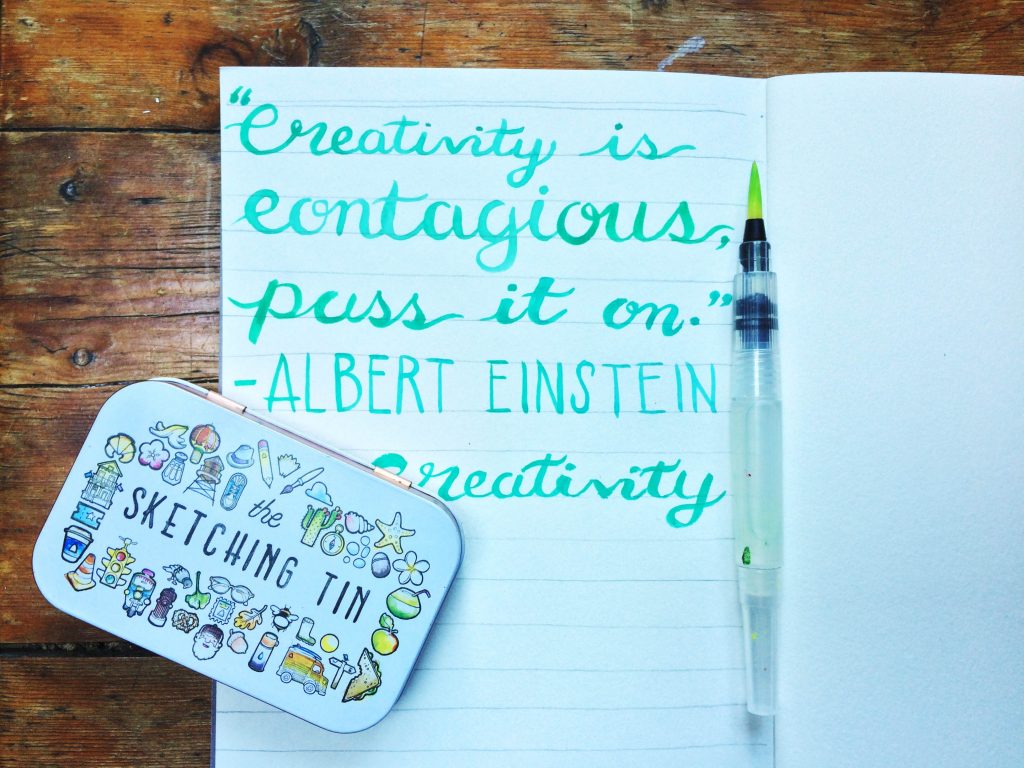 “Creativity is
contagious,
pass it on.”
-ALBERT EINSTEIN
Creativity
the
SKETCHING TIN